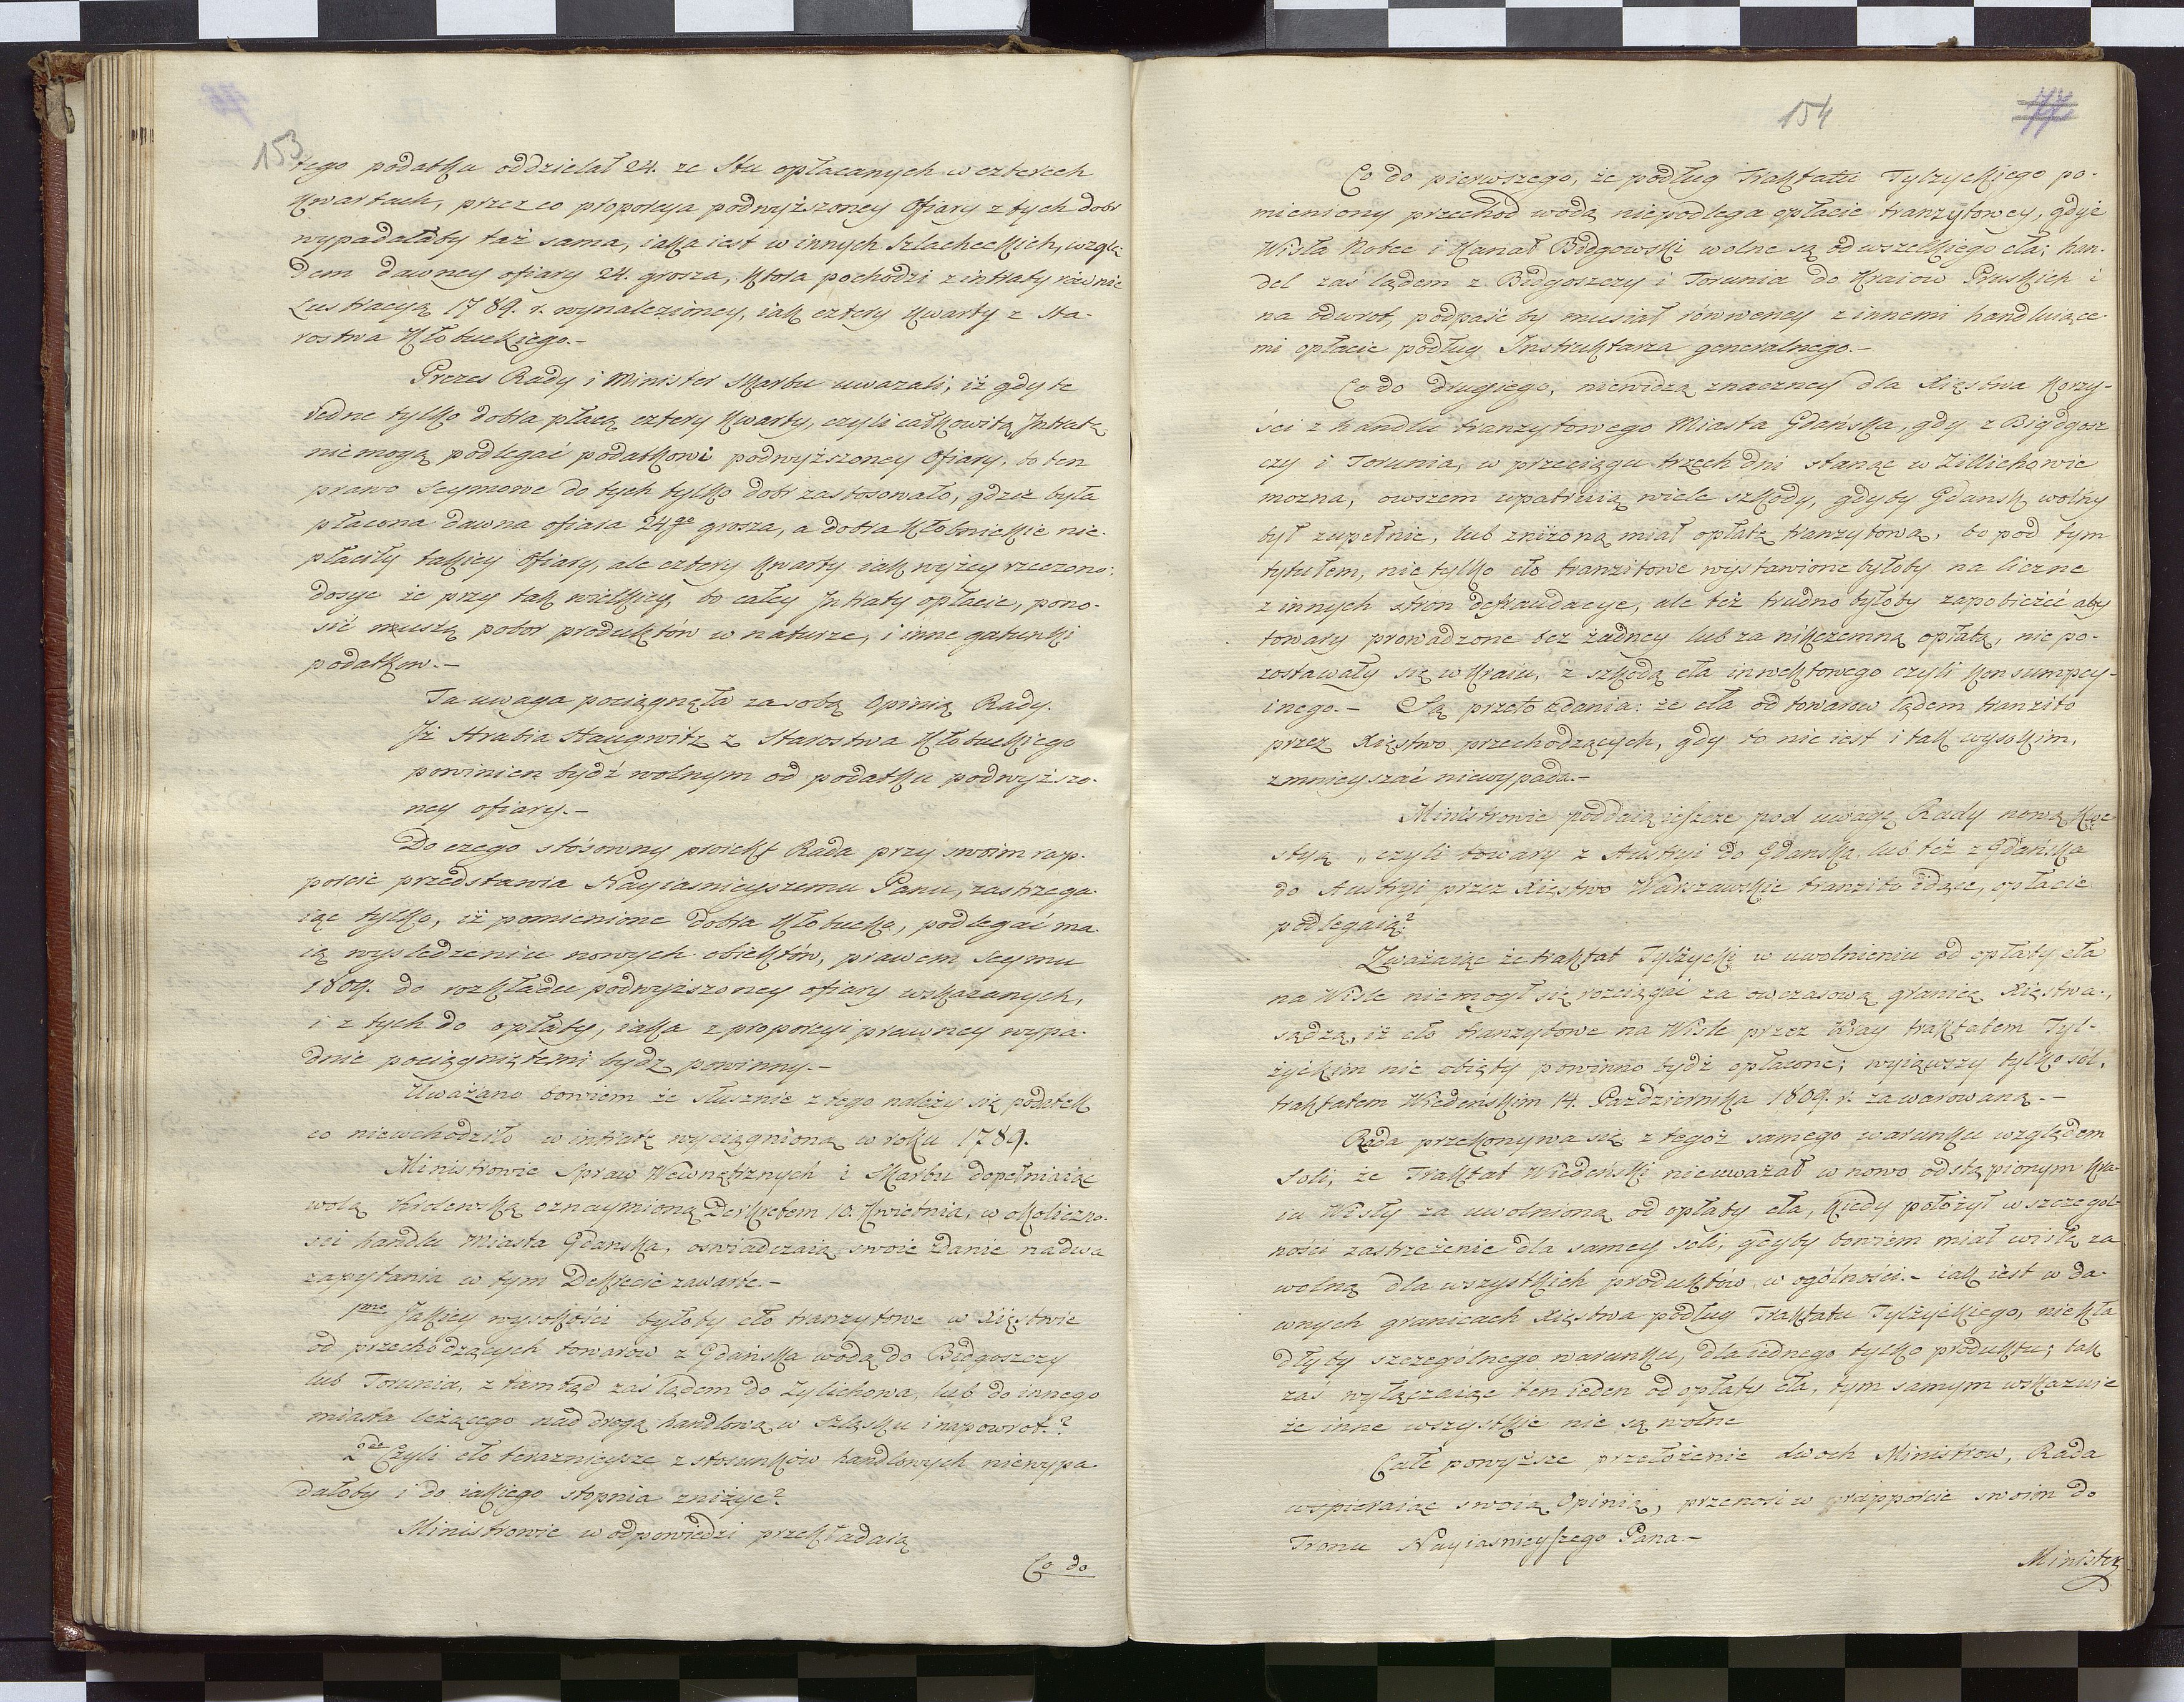 153
tego podatku oddzielał 24. ze Stu opłacanych w czterech
kwartach, przez co proporcya podwyższoney Ofiary z tych dobr
wypadałaby taż sama, iaka iest w innych Szlacheckich, wzglę-
dem dawney ofiary 24. grosza, ktora pochodzi z intraty rownie
Lustracyą 1789. r. wynalezioney, iak cztery kwarty z Sta-
rostwa Kłobuckiego.-
Prezes Rady i Minister Skarbu uwazali, iż gdy te
iedne tylko dobra płacą cztery kwarty, czyli całkowitą Intratę
niemogą podlegać podatkowi podwyższoney Ofiary, bo ten
prawo Seymowe do tych tylko dobr zastosowało, gdzie była
płacona dawna ofiara 24go grosza, a dobra Kłobuckie nie-
płaciły takiey Ofiary, ale cztery kwarty iak wyżey rzeczono;
dosyc że przy tak wielkiey, bo całey Intraty opłacie, pono-
sić muszą pobor produktów w naturze, i inne gatunki
podatkow.-
Ta uwaga pociągnęła za sobą Opinią Rady.
Iż Hrabia Haugwitz z Starostwa Kłobuckiego
powinien bydź wolnym od podatku podwyższo-
ney ofiary.-
Do czego stósowny proiekt Rada przy swoim rap-
porcie przedstawia Nayiasnieyszemu Panu, zastrzega-
iąc tylko, iż pomienione dobra Kłobucko, podlegać ma-
ią wysledzeniu nowych obiektów, prawem Seymu
1809. do rozkładu podwyższoney ofiary wskazanych,
i z tych do opłaty, iaka z proporcyi prawney wypa-
dnie pociągniętemi bydz powinny.-
Uważano bowiem że słusznie z tego należy się podatek
co niewchodziło w intratę wyciągnioną w roku 1789.
Ministrowie Spraw Wewnętrznych i Skarbu dopełniaiąc
wolą Krolewską oznaymioną Dekretem 10. Kwietnia, w okoliczno-
ści handlu Miasta Gdanska, oswiadczaią swoie zdanie na dwa
zapytania w tym Dekrecie zawarte.-
1mo Jakiey wysokości byłoby cło tranzytowe w Xięstwie
od przechodzących towarow z Gdańska wodą do Bidgoszczy
lub Torunia, z tamtąd zaś lądem do Zylichowa, lub do innego
miasta leżącego nad drogą handlową w Szląsku i napowrot.?
2do Czyli cło teraznieysze z stosunków handlowych niewypa-
dałoby i do iakiego stopnia zniżyć?
Ministrowie w odpowiedzi przekładaią
Co do
154
77
Co do pierwszego, że podług Traktatu Tylzyckiego po-
mieniony przechod wodą niepodlega opłacie tranzytowey, gdyż
Wisła Notec i Kanał Bidgowski wolne są od wszelkiego cła; han-
del zaś lądem z Bidgoszczy i Torunia do Kraiow Pruskich i
na odwrot, podpaść by musiał równeney z innemi handluiące-
mi opłacie podług Instruktarza generalnego.-
Co do drugiego, niewidzą znaczney dla Xięstwa korzy-
ści z handlu tranzytowego Miasta Gdańska, gdy z Bigdgosz
czy i Torunia, w przeciągu trzech dni stanąc w Zillichowie
mozna, owszem upatruią wiele szkody, gdyby Gdansk wolny
był zupełnie, lub zniżoną miał opłatę tranzytową, bo pod tym
tytułem, nie tylko cło tranzitowe wystawione byłoby na liczne
z innych stron defraudacye, ale też trudno byłoby zapobieżeć aby
towary prowadzone bez żadney lub za nikczemną opłatą, nie po-
zostawały się w Kraiu, z szkodą cła inwektowego czyli konsumpcy-
inego.- Są przeto zdania: że cła od towarow lądem tranzito
przez Xięstwo przechodzących, gdy to nie iest i tak wysokim,
zmnieyszać niewypada.-
Ministrowie poddaią ieszcze pod uwagę Rady nową Kwe
styą „czyli towary z Austryi do Gdanska lub też z Gdańska
do Austryi przez Xięstwo Warszawskie tranzito idące, opłacie
podlegaią?
Zważaiąc że traktat Tylżycki w uwolnieniu od opłaty cła
na Wisle niemogł się rozciągać za owczasową granicę Xięstwa,
sądzą, iż cło tranzytowe na Wisle przez Kray traktatem Tyl-
życkim nie obięty powinno bydź opłacone; wyiąwszy tylko sól,
traktatem Wiedeńskim 14. Pazdziernika 1809. r. zawarowaną.-
Rada przekonywa się z tegoż samego warunku względem
Soli, że Traktat Wiedeński nieuważał w nowo odstąpionym Kra-
iu Wisły za uwolnioną od opłaty cła, kiedy położył w szczegol-
ności zastrzeżenie dla samey soli; gdyby bowiem miał wisłę za
wolną dla wszystkich produktów w ogólności.- iak iest w da-
wnych granicach Xięstwa podług Traktatu Tylżyckiego, niekła
dłby szczególnego warunku, dla iednego tylko produktu; tak
zaś wyłączaiąc ten ieden od opłaty cła, tym samym wskazuie
że inne wszystkie nie są wolne
Całe powyższe przełożenie dwoch Ministrow, Rada
wspieraiąc swoią Opinią, przenosi w rapporcie swoim do
Tronu Nayiasnieyszego Pana.-
Minister